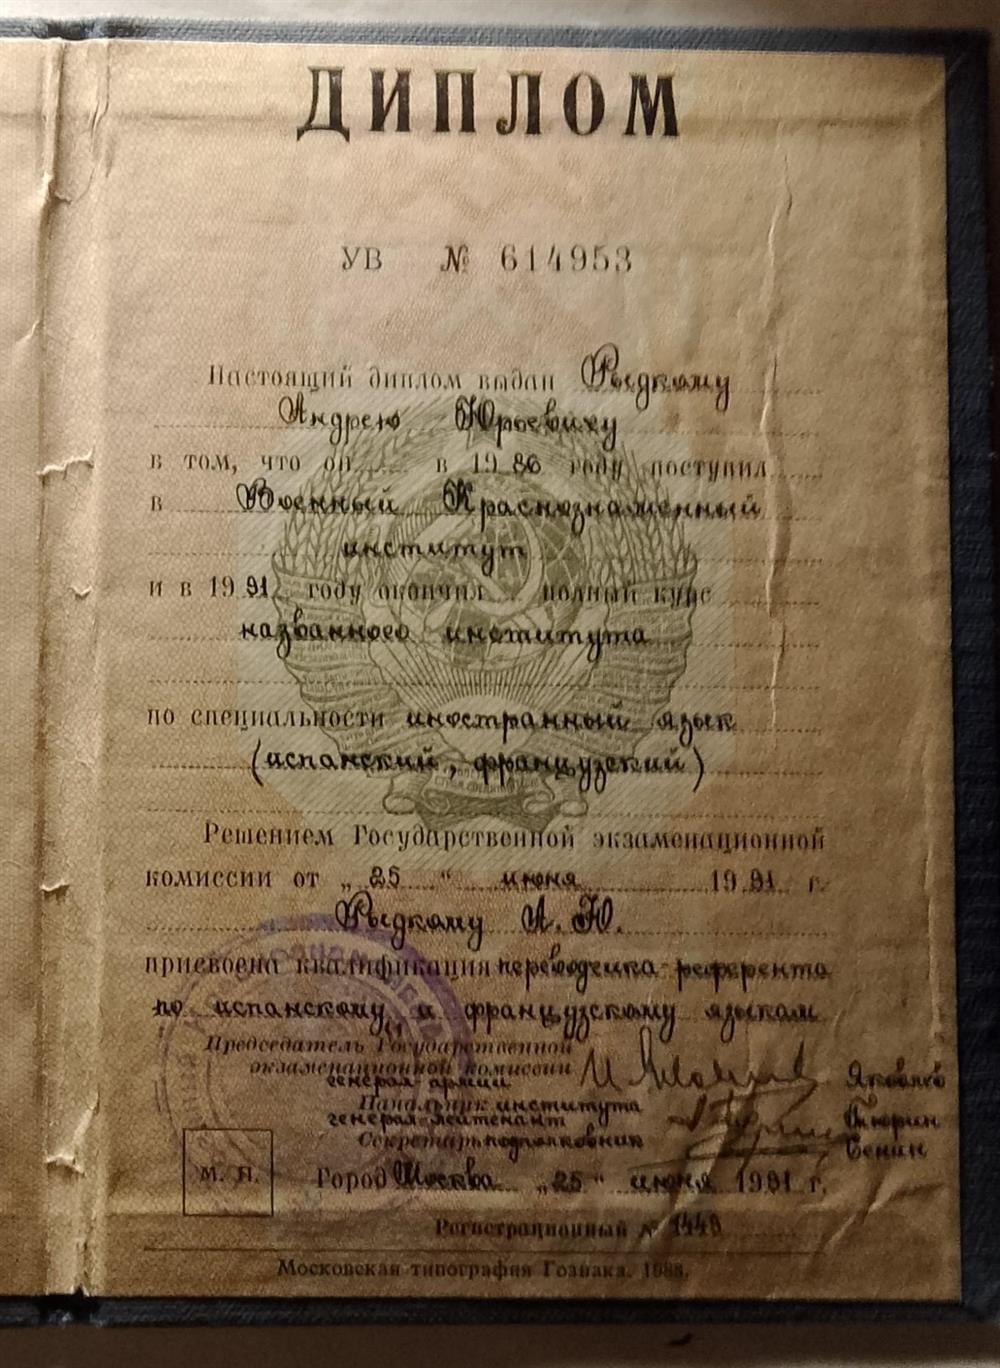 ДИПЛОМ
УВ № 614953
Настоящий диплом выдан Рыдкому
Андрею Юрьевичу
в том, что он в 1986 году поступил
в Военный Краснознаменный
институт
и в 1991 году окончил полный курс
названного института
по специальности иностранный язык
(испанский, французский)
Решением Государственной экзаменационной
комиссии от „25“ июня 1991 г.
Рыдкому А. Ю.
присвоена квалификация переводчика-референта
по испанскому и французскому языкам
Председатель Государственной
экзаменационной комиссии
генерал армии Яковлев
Начальник института
генерал-лейтенант Тюрин
Секретарь подполковник Сенин
М. П. Город Москва „25“ июня 1991 г.
Регистрационный № 1449
Московская типография Гознака. 1988.